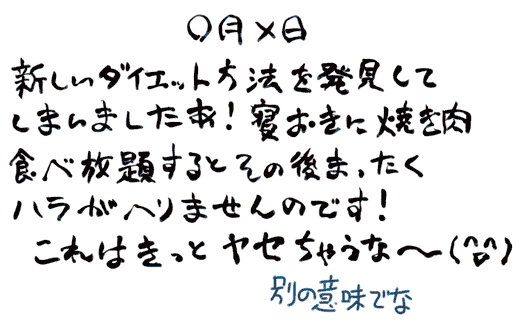 〇月×日
新しいダイエット方法を発見して
しまいましたわ！寝おきに焼き肉
食べ放題するとその後まったく
ハラがヘりませんのです！
これはきっとヤセちゃうな〜(^▽^)
別の意味でな